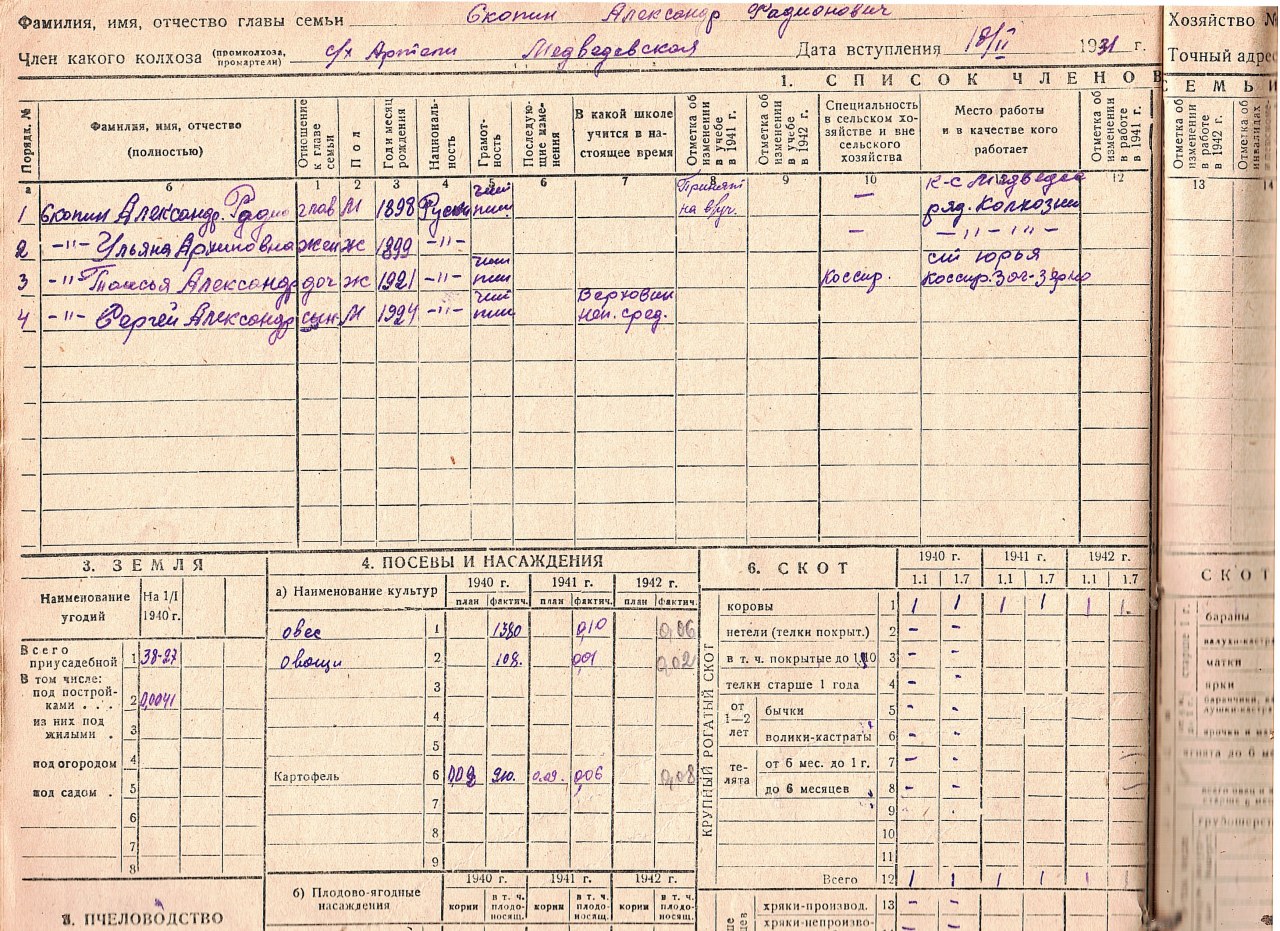 Фамилия, имя, отчество главы семьи Скопин Александр Радионович
Член какого колхоза (промколхоза, промартели) с/х Артели Медведевская Дата вступления 18/II 1931 г.
Хозяйство №
Точный адрес
1. СПИСОК ЧЛЕНОВ СЕМЬИ
Порядк. №
Фамилия, имя, отчество (полностью)
Отношение к главе семьи
Пол
Год и месяц рождения
Националь-ность
Грамот-ность
Последую-щие изме-нения
В какой школе учится в на-стоящее время
Отметка об изменении в учебе в 1941 г.
Отметка об изменении в учебе в 1942 г.
Специальность в сельском хо-зяйстве и вне сельского хозяйства
Место работы и в качестве кого работает
Отметка об изменении в работе в 1941 г.
Отметка об изменении в работе в 1942 г.
Отметка об инвалидах
а б 1 2 3 4 5 6 7 8 9 10 12 13 14
1 Скопин Александр. Радио глав М 1898 Руский чит пиш Принят на в/уч. — к-с Медведев ряд. Колхозни
2 -"- Ульяна Архиповна жен ж 1899 -"- — -"- -"-
3 -"- Таисья Александр доч ж 1921 -"- чит пиш Коссир. с/п Юрья Коссир. Заг-Зерно
4 -"- Сергей Александр сын М 1924 -"- чит пиш Верховин неп. сред.
3. ЗЕМЛЯ
Наименование угодий На 1/I 1940 г.
Всего приусадебной 1 38-27
В том числе:
под построй-ками . . . 2 0,0041
из них под жилыми . 3
под огородом 4
под садом . 5
6
7
8
4. ПОСЕВЫ И НАСАЖДЕНИЯ
а) Наименование культур 1940 г. 1941 г. 1942 г.
план фактич. план фактич. план фактич.
овес 1 1380 0,10 0,06
овощи 2 108. 0,01 0,02
3
4
5
Картофель 6 0,09. 0,06 0,08
7
8
9
б) Плодово-ягодные насаждения 1940 г. 1941 г. 1942 г.
корни в т. ч. плодо-носящ. корни в т. ч. плодо-носящ. корни в т. ч. плодо-носящ.
6. СКОТ
1940 г. 1941 г. 1942 г.
1.1 1.7 1.1 1.7 1.1 1.7
КРУПНЫЙ РОГАТЫЙ СКОТ
коровы 1 1 1 1 1 1 1.
нетели (телки покрыт.) 2 - -
в т. ч. покрытые до 1/10 3 - -
телки старше 1 года 4 - -
от 1—2 лет
бычки 5 - -
волики-кастраты 6 - -
те-лята
от 6 мес. до 1 г. 7 - -
до 6 месяцев 8 - -
9
10
11
Всего 12 1 1 1 1 1 1
хряки-производ. 13 - -
хряки-непроизво-
СКОТ
бараны
матки
ярки
ПЧЕЛОВОДСТВО